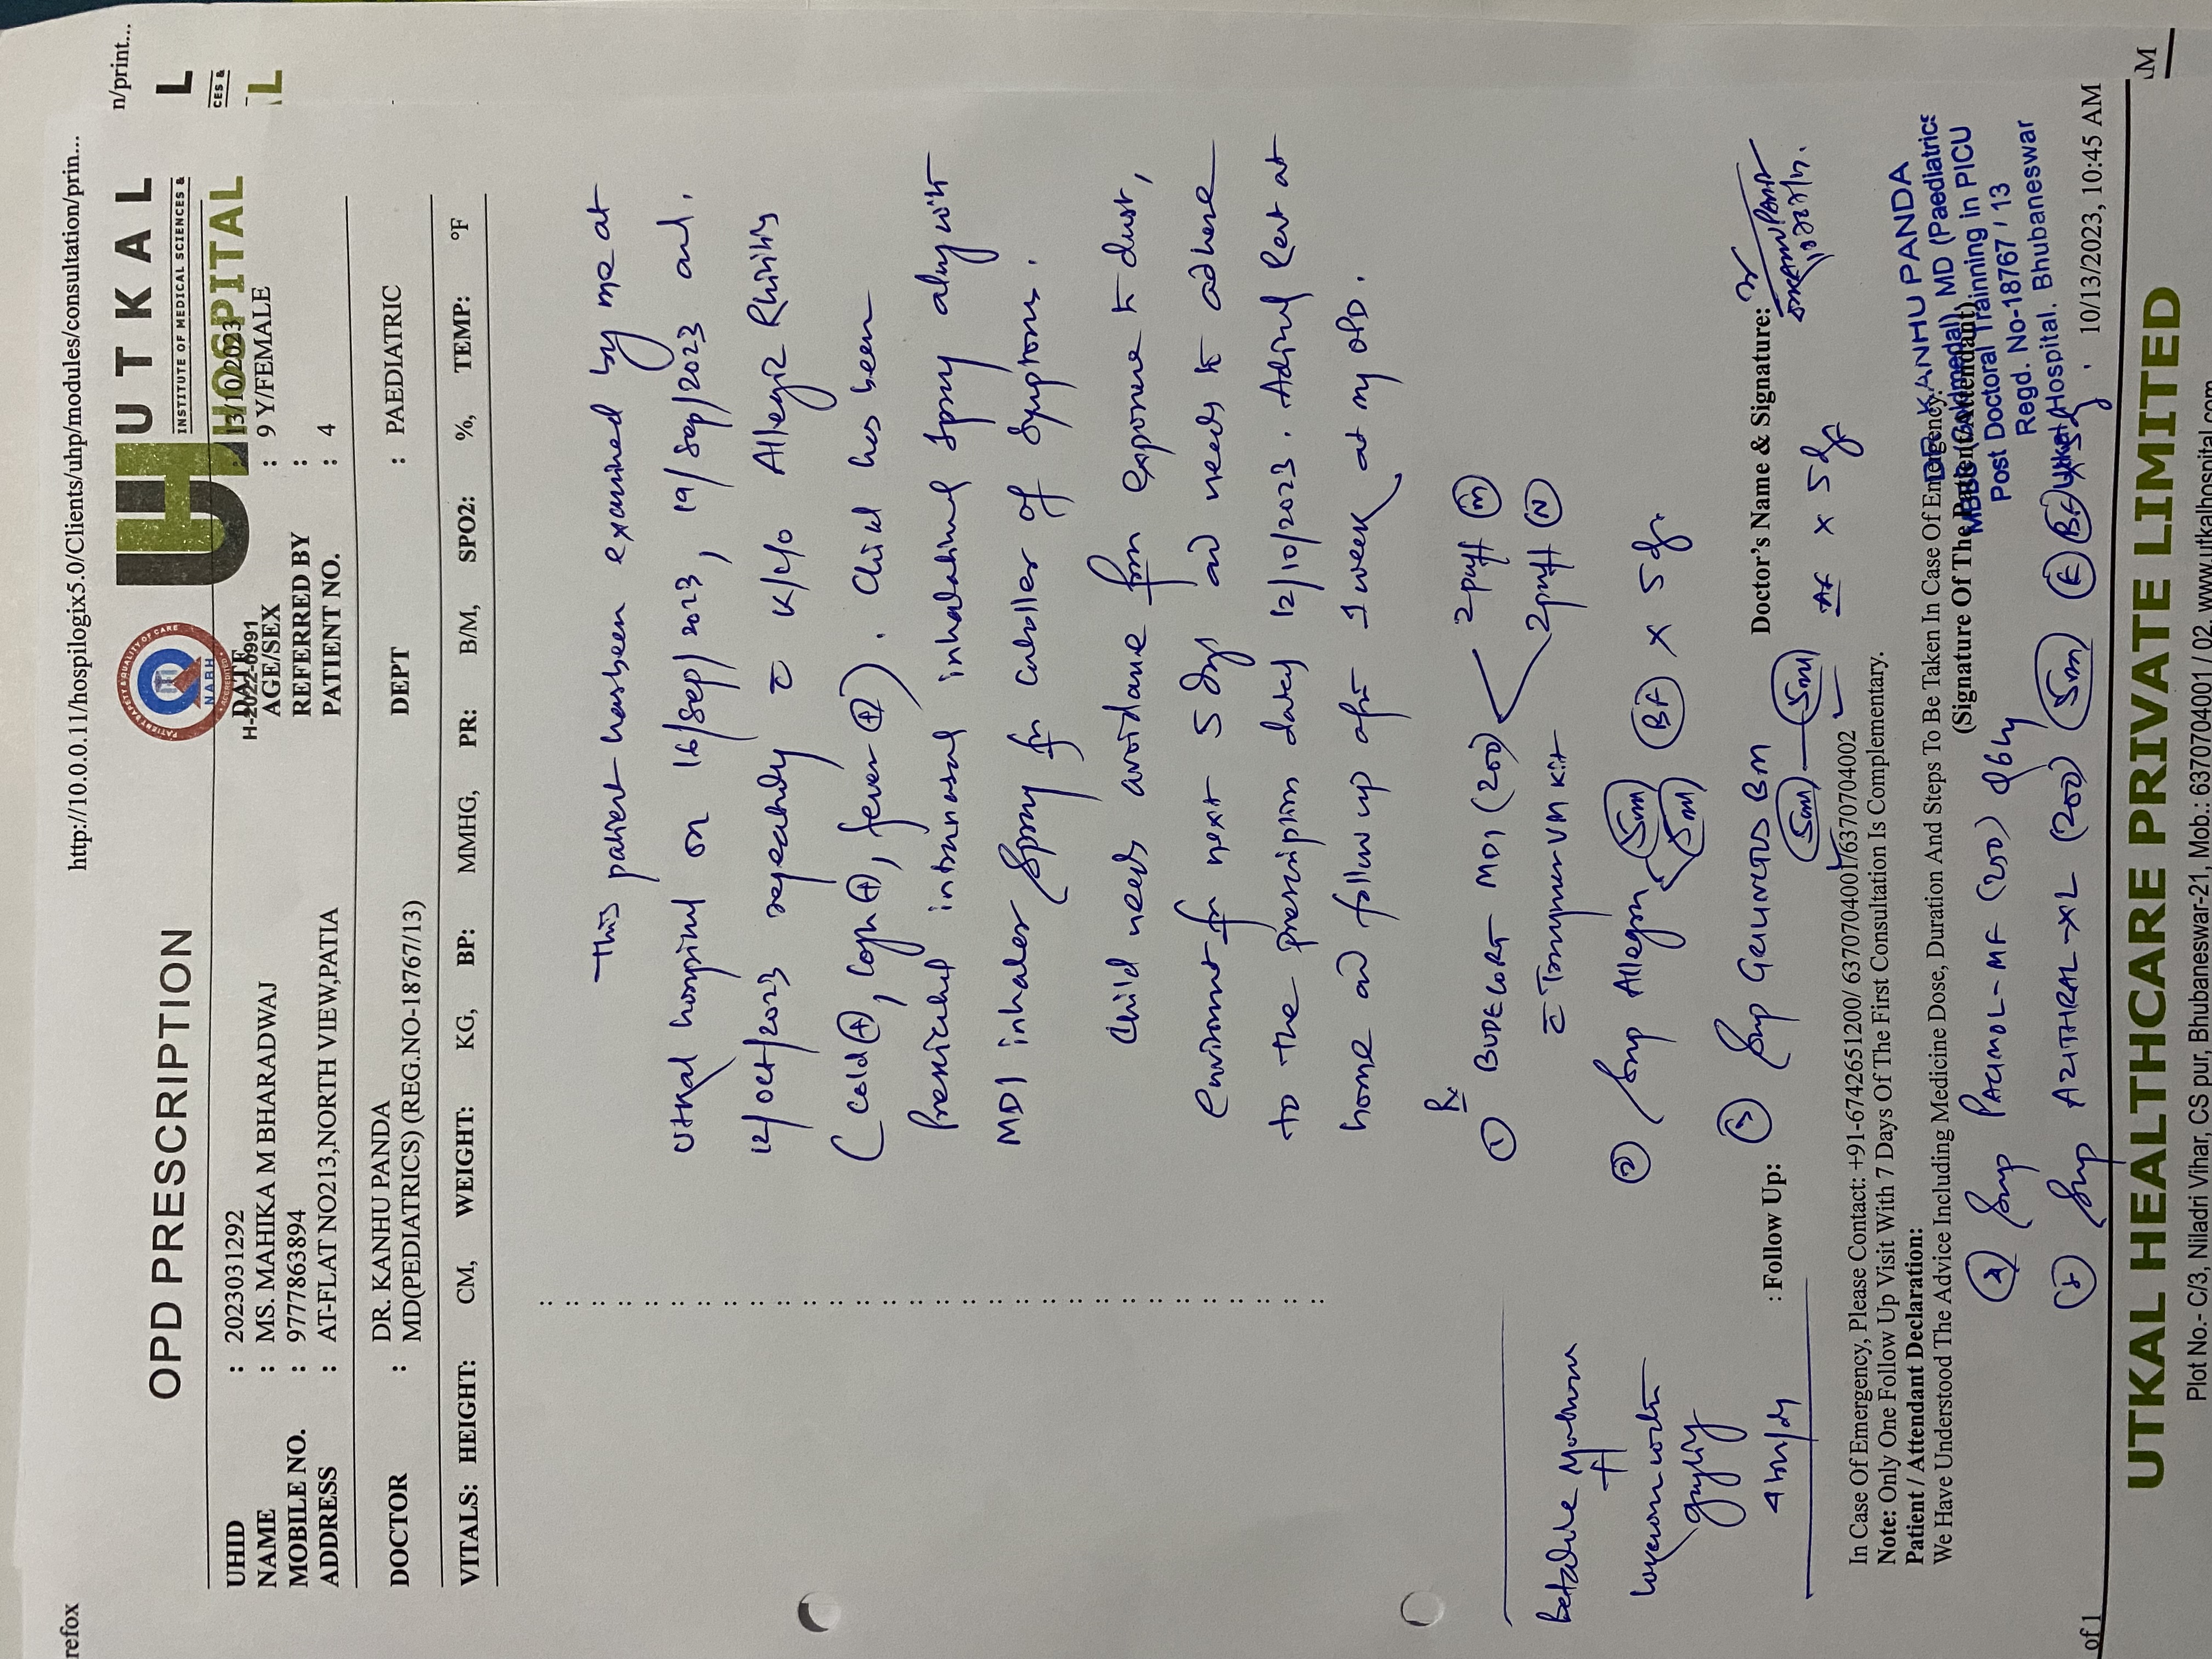 refox
http://10.0.0.11/hospilogix5.0/Clients/uhp/modules/consultation/prin...
n/print...
OPD PRESCRIPTION
UTKAL
INSTITUTE OF MEDICAL SCIENCES &
HOSPITAL
L
CES &
L
NABH
UHID : 2023031292
DATE : 13/10/2023
H-2022-0991
NAME : MS. MAHIKA M BHARADWAJ
AGE/SEX : 9 Y/FEMALE
MOBILE NO. : 9777863894
REFERRED BY :
ADDRESS : AT-FLAT NO213,NORTH VIEW,PATIA
PATIENT NO. : 4
DOCTOR : DR. KANHU PANDA
MD(PEDIATRICS) (REG.NO-18767/13)
DEPT : PAEDIATRIC
VITALS: HEIGHT: CM, WEIGHT: KG, BP: MMHG, PR: B/M, SPO2: %, TEMP: °F
This patient has been examined by me at
Utkal hospital on 16/Sep/2023, 19/Sep/2023 and
12/Oct/2023 repeatedly c̄ K/C/O Allergic Rhinitis
(Cold ⊕, Cough ⊕, fever ⊕). Child has been
Prescribed intranasal inhalational spray along with
MDI inhaler spray for Controller of Symptoms.
Child needs avoidance from exposure to dust,
environment for next 5 days and needs to adhere
to the prescription dated 12/10/2023. Advised Rest at
home and follow up after 1 week at my OPD.
Rx
① BUDECORT MDI (200) 2 puff Ⓜ
2 puff Ⓝ
② Syp Allegra 5ml 5ml BF x 5 dy
③ Syp GRILINCTUS BM
5ml — 5ml AF x 5 dy
④ Syp PACIMOL-MF (250) Q6hly
⑤ Syp AZITHRAL-XL (200) 5ml BF x 5 dy
betadine
lukewarm water
gargling
4 times/day
: Follow Up:
Doctor's Name & Signature:
DR. KANHU PANDA
MBBS (Goldmedal), MD (Paediatrics
Post Doctoral Trainning in PICU
Regd. No-18767 / 13
Utkal Hospital. Bhubaneswar
In Case Of Emergency, Please Contact: +91-6742651200/ 6370704001/6370704002
Note: Only One Follow Up Visit With 7 Days Of The First Consultation Is Complementary.
Patient / Attendant Declaration:
We Have Understood The Advice Including Medicine Dose, Duration And Steps To Be Taken In Case Of Emergency.
(Signature Of The Patient/Attendant)
of 1
10/13/2023, 10:45 AM
AM
UTKAL HEALTHCARE PRIVATE LIMITED
Plot No.- C/3, Niladri Vihar, CS pur, Bhubaneswar-21, Mob.: 6370704001 / 02, www.utkalhospital.com